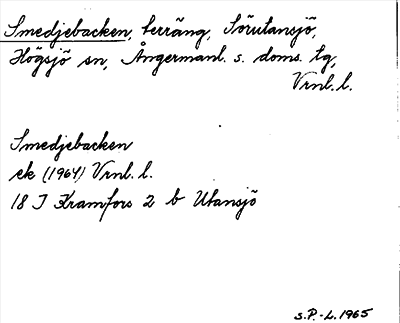 Smedjebacken, terräng, Sörutansjö,
Högsjö sn, Ångermanl. s. doms. tg,
Vrnl. l.
Smedjebacken
ek (1964) Vrnl. l.
18 I Kramfors 2 b Utansjö
S.P.-L. 1965